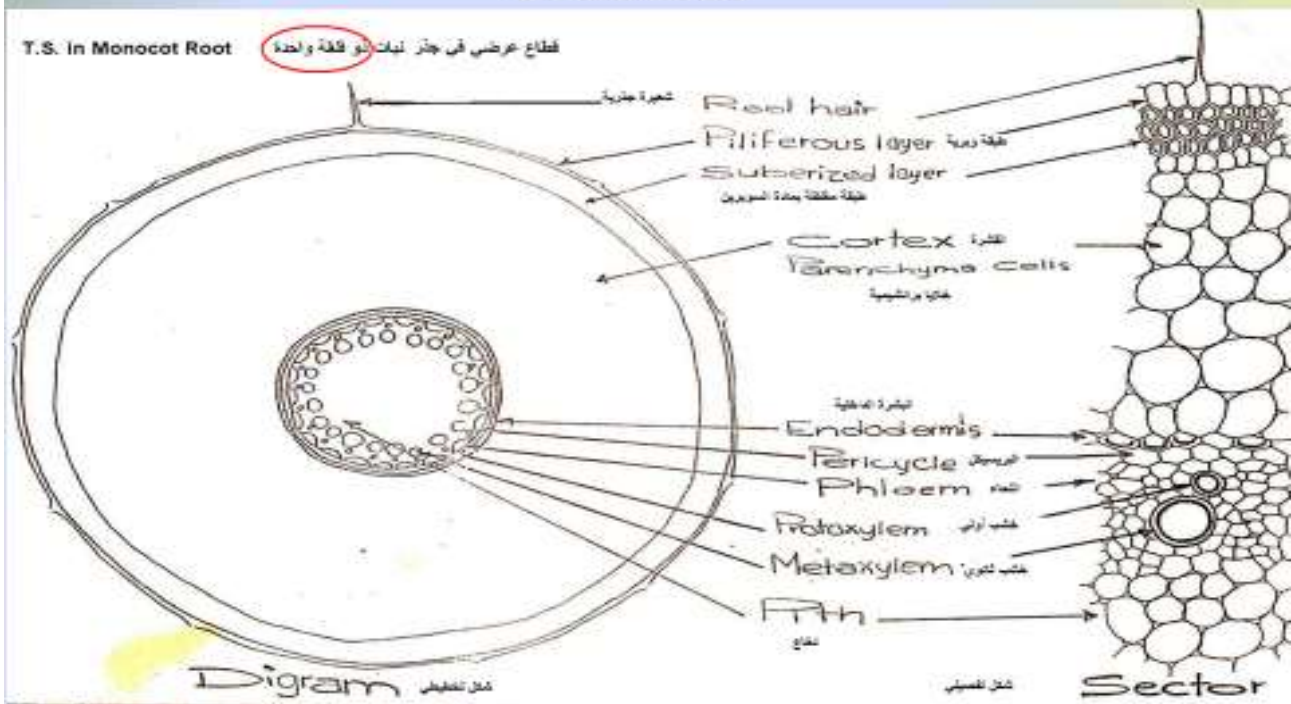 T.S. in Monocot Root قطاع عرضي في جذر نبات ذو فلقة واحدة
شعيرة جذرية
Root hair
Piliferous layer طبقة وبرية
Suberized layer
طبقة مغلظة بمادة السوبرين
Cortex القشرة
Parenchyma cells
خلايا برانشيمية
البشرة الداخلية
Endodermis
Pericycle البريسيكل
Phloem اللحاء
Protoxylem خشب أولي
Metaxylem خشب ثانوي
Pith
نخاع
Digram شكل تخطيطي
شكل تفصيلي Sector